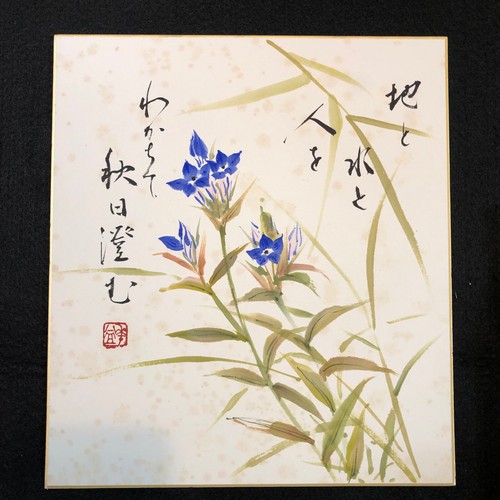 地と
水と
人を
わかちて
秋日澄む